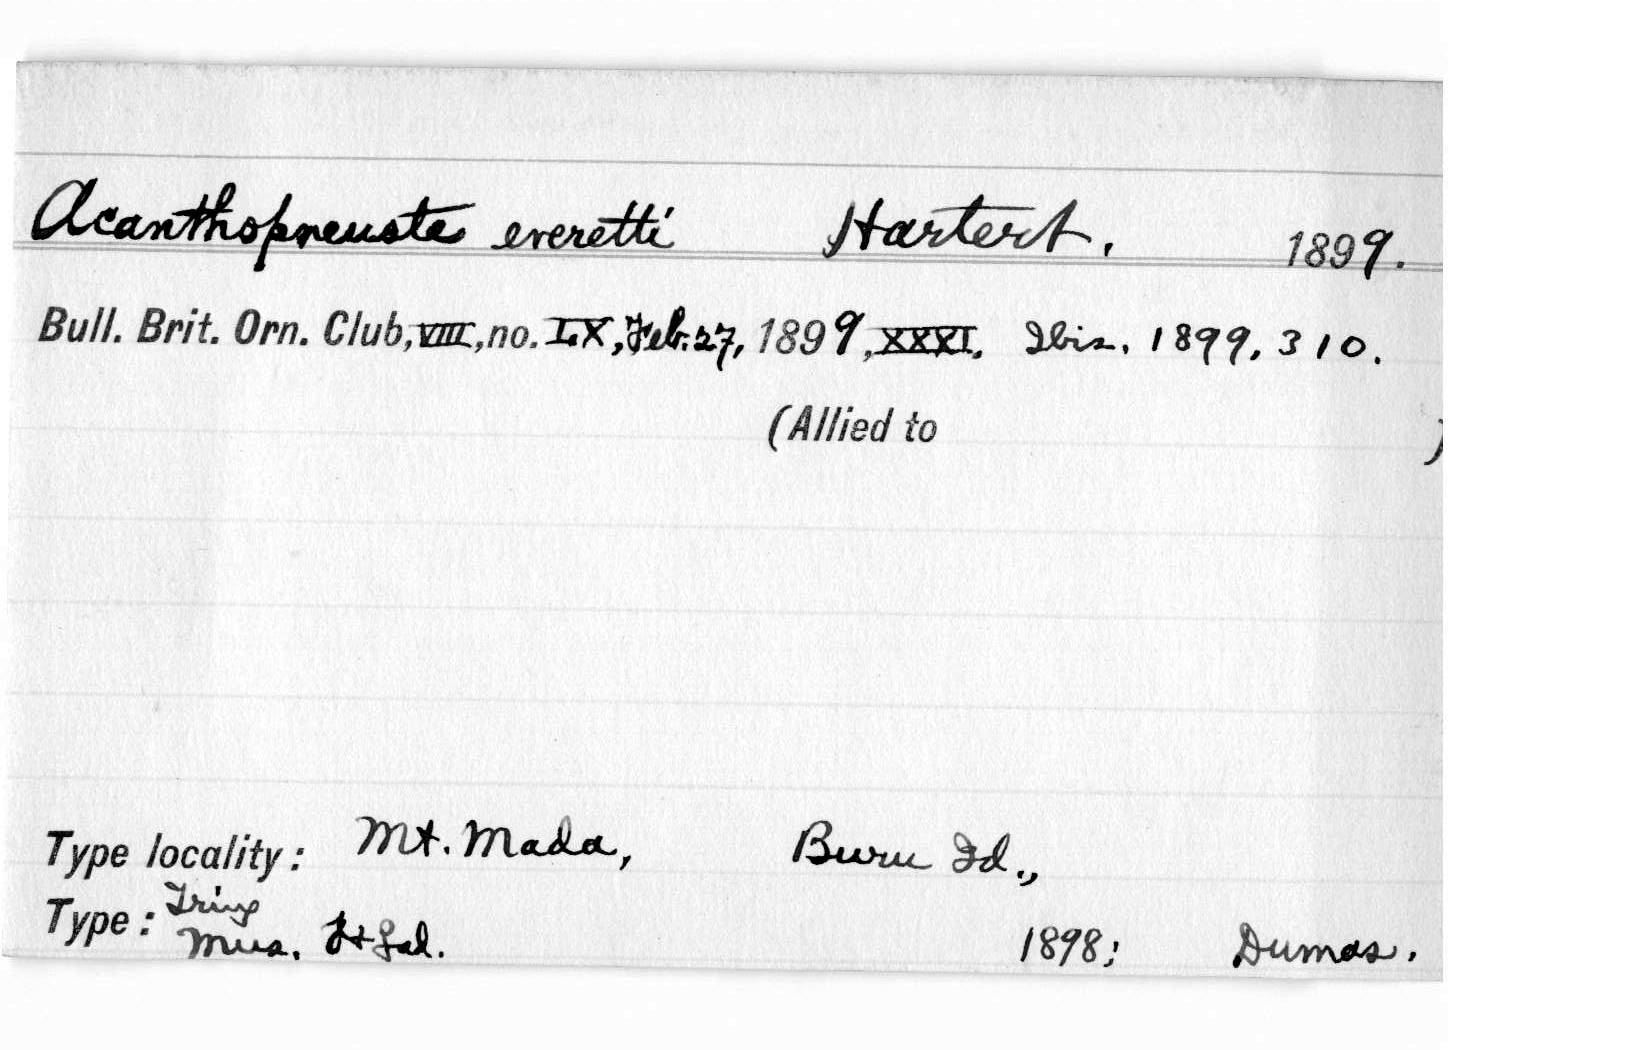 Acanthopneuste everetti Hartert. 1899.
Bull. Brit. Orn. Club, VIII, no. LX, Feb. 27, 1899, XXXI. Ibis. 1899, 310.
(Allied to )
Type locality: Mt. Mada, Buru Id.,
Type: Tring
Mus. Gal. 1898; Dumas.